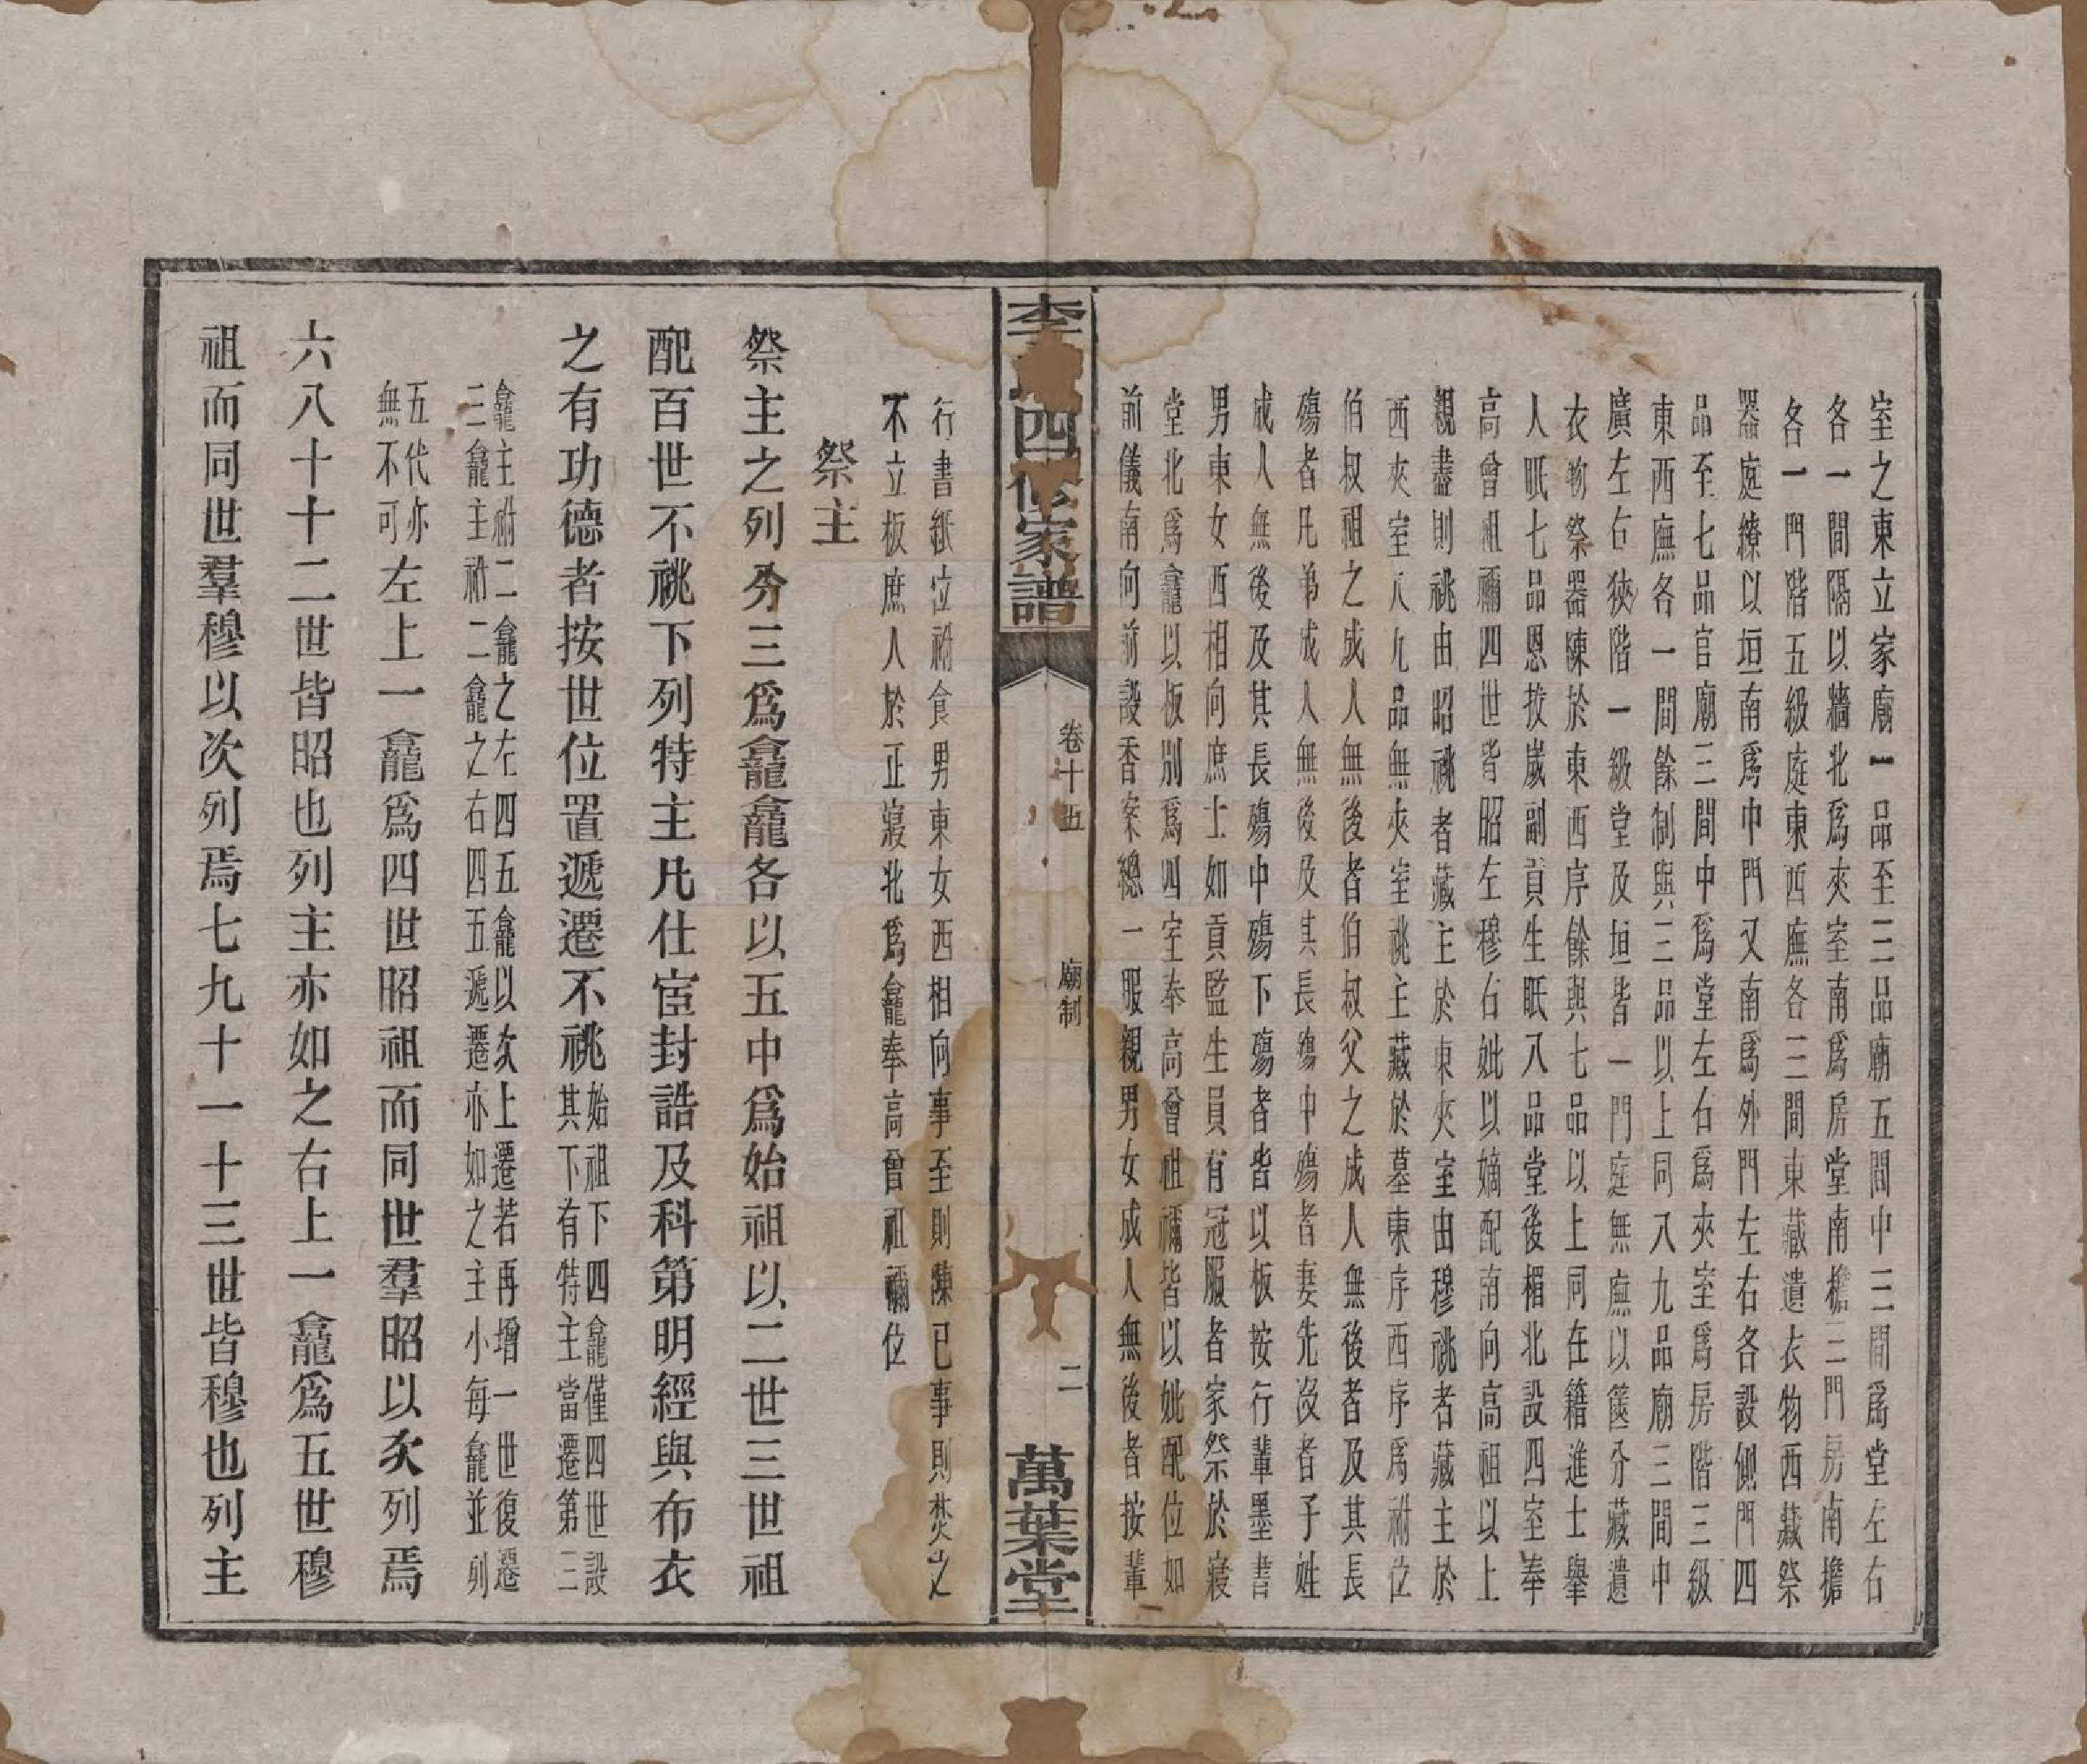 室之東立家廟一品至三品廟五間中三間爲堂左右
各一間隔以牆北爲夾室南爲房堂南檐三門房南檐
各一門階五級庭東西廡各三間東藏遺衣物西藏祭
器庭繚以垣南爲中門又南爲外門左右各設側門四
品至七品官廟三間中爲堂左右爲夾室爲房階三級
東西廡各一間餘制與三品以上同八九品廟三間中
廣左右狹階一級堂及垣皆一門庭無廡以篋分藏遺
衣物祭器陳於東西序餘與七品以上同在籍進士舉
人眡七品恩拔歲副貢生眡八品堂後楣北設四室奉
高曾祖禰四世皆昭左穆右妣以嫡配南向高祖以上
親盡則祧由昭祧者藏主於東夾室由穆祧者藏主於
西夾室八九品無夾室祧主藏於墓東序西序爲祔位
伯叔祖之成人無後者伯叔父之成人無後者及其長
殤者凡弟成人無後及其長殤中殤者妻先沒者子姓
成人無後及其長殤中殤下殤者皆以板按行輩墨書
男東女西相向庶士如貢監生員有冠服者家祭於寢
堂北爲龕以板別爲四室奉高曾祖禰皆以妣配位如
前儀南向前設香案總一服親男女成人無後者按輩
李 四修家譜
卷十五
廟制
二
萬葉堂
行書紙位祔食男東女西相向事至則陳已事則焚之
不立板庶人於正寢北爲龕奉高曾祖禰位
祭主
祭主之列分三爲龕龕各以五中爲始祖以二世三世祖
配百世不祧下列特主凡仕宦封誥及科第明經與布衣
之有功德者按世位置遞遷不祧始祖下四龕僅四世設
其下有特主當遷第三
龕主祔二龕之左四五龕以次上遷若再增一世復遷
三龕主祔二龕之右四五遞遷亦如之主小每龕並列
五代亦
無不可左上一龕爲四世昭祖而同世羣昭以次列焉
六八十十二世皆昭也列主亦如之右上一龕爲五世穆
祖而同世羣穆以次列焉七九十一十三世皆穆也列主